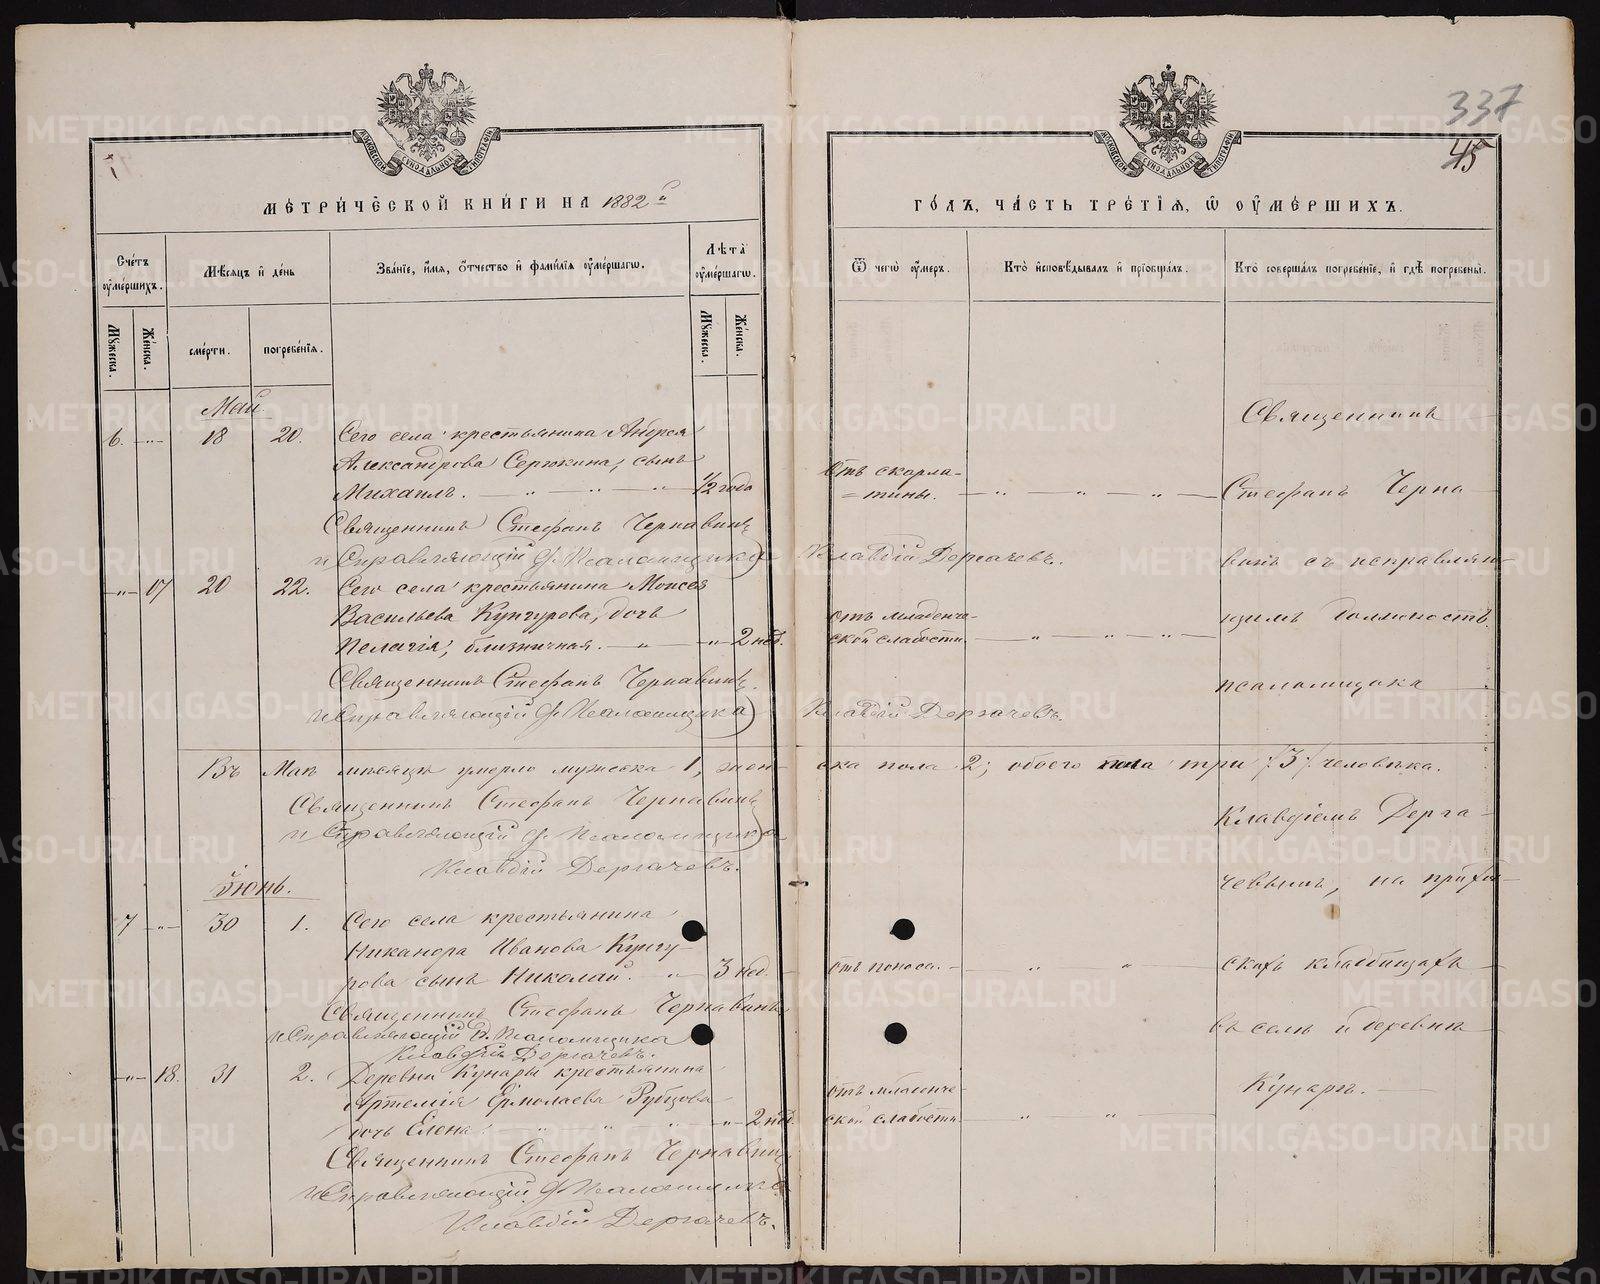 337
45
МЕТРИЧЕСКОЙ КНИГИ НА 1882 й
ГОДЪ, ЧАСТЬ ТРЕТІЯ, Ѡ ОУМЕРШИХЪ.
Счетъ оумершихъ.
Мѣсяцъ и день
Званіе, имя, отчество и фамилія оумершагѡ.
Лѣта оумершагѡ.
Ѿ чегѡ оумеръ.
Кто исповѣдывалъ и пріобщалъ.
Кто совершалъ погребеніе, и гдѣ погребены.
Мꙋжеска.
Женска.
смерти.
погребенія.
Мꙋжеска.
Женска.
Май.
6. - „ - 18 20. Сего села крестьянина Андрея
Александрова Серюкина, сынъ
Михаилъ. - „ - „ - „ - 1/2 года
Отъ скарла-
=тины. - „ - „ - „ -
Священникъ Стефанъ Чернавинъ
и Справляющій д. Псаломщика Клавдій Дергачевъ.
- „ - 17 20 22. Сего села крестьянина Моисея
Васильева Кунгурова, дочь
Пелагія, близничная. - „ - „ - 2 нед.
отъ младенче-
ской слабости. - „ - „ - „ -
Священникъ Стефанъ Чернавинъ.
и Справляющій д. Псаломщика Клавдій Дергачевъ.
Въ Маѣ мѣсяцѣ умерло мужеска 1, жен-
ска пола 2; обоего пола три /3/ человѣка.
Священникъ Стефанъ Чернавинъ
и Справляющій д. Псаломщика
Клавдій Дергачевъ.
Іюнь.
7 - „ - 30 1. Сего села крестьянина
Никанора Иванова Кунгу-
рова сынъ Николай. - „ - 3 нед. -
отъ поноса. - „ - „ -
Священникъ Стефанъ Чернавинъ
и Справляющій д. Псаломщика
Клавдій Дергачевъ.
- „ - 18. 31 2. Деревни Кунары крестьянина
Артемія Ермолаева Рубцова
дочь Елена. - „ - „ - „ - „ - 2 нед.
отъ младенче-
ской слабости - „ - „ -
Священникъ Стефанъ Чернавинъ
и Справляющій д. Псаломщика
Клавдій Дергачевъ.
Священникъ
Стефанъ Черна
винъ съ исправляю-
щимъ должность
псаломщика
Клавдіемъ Дерга-
чевымъ, на приход-
скихъ кладбищахъ
въ селѣ и деревнѣ
Кунарѣ.
METRIKI.GASO-URAL.RU